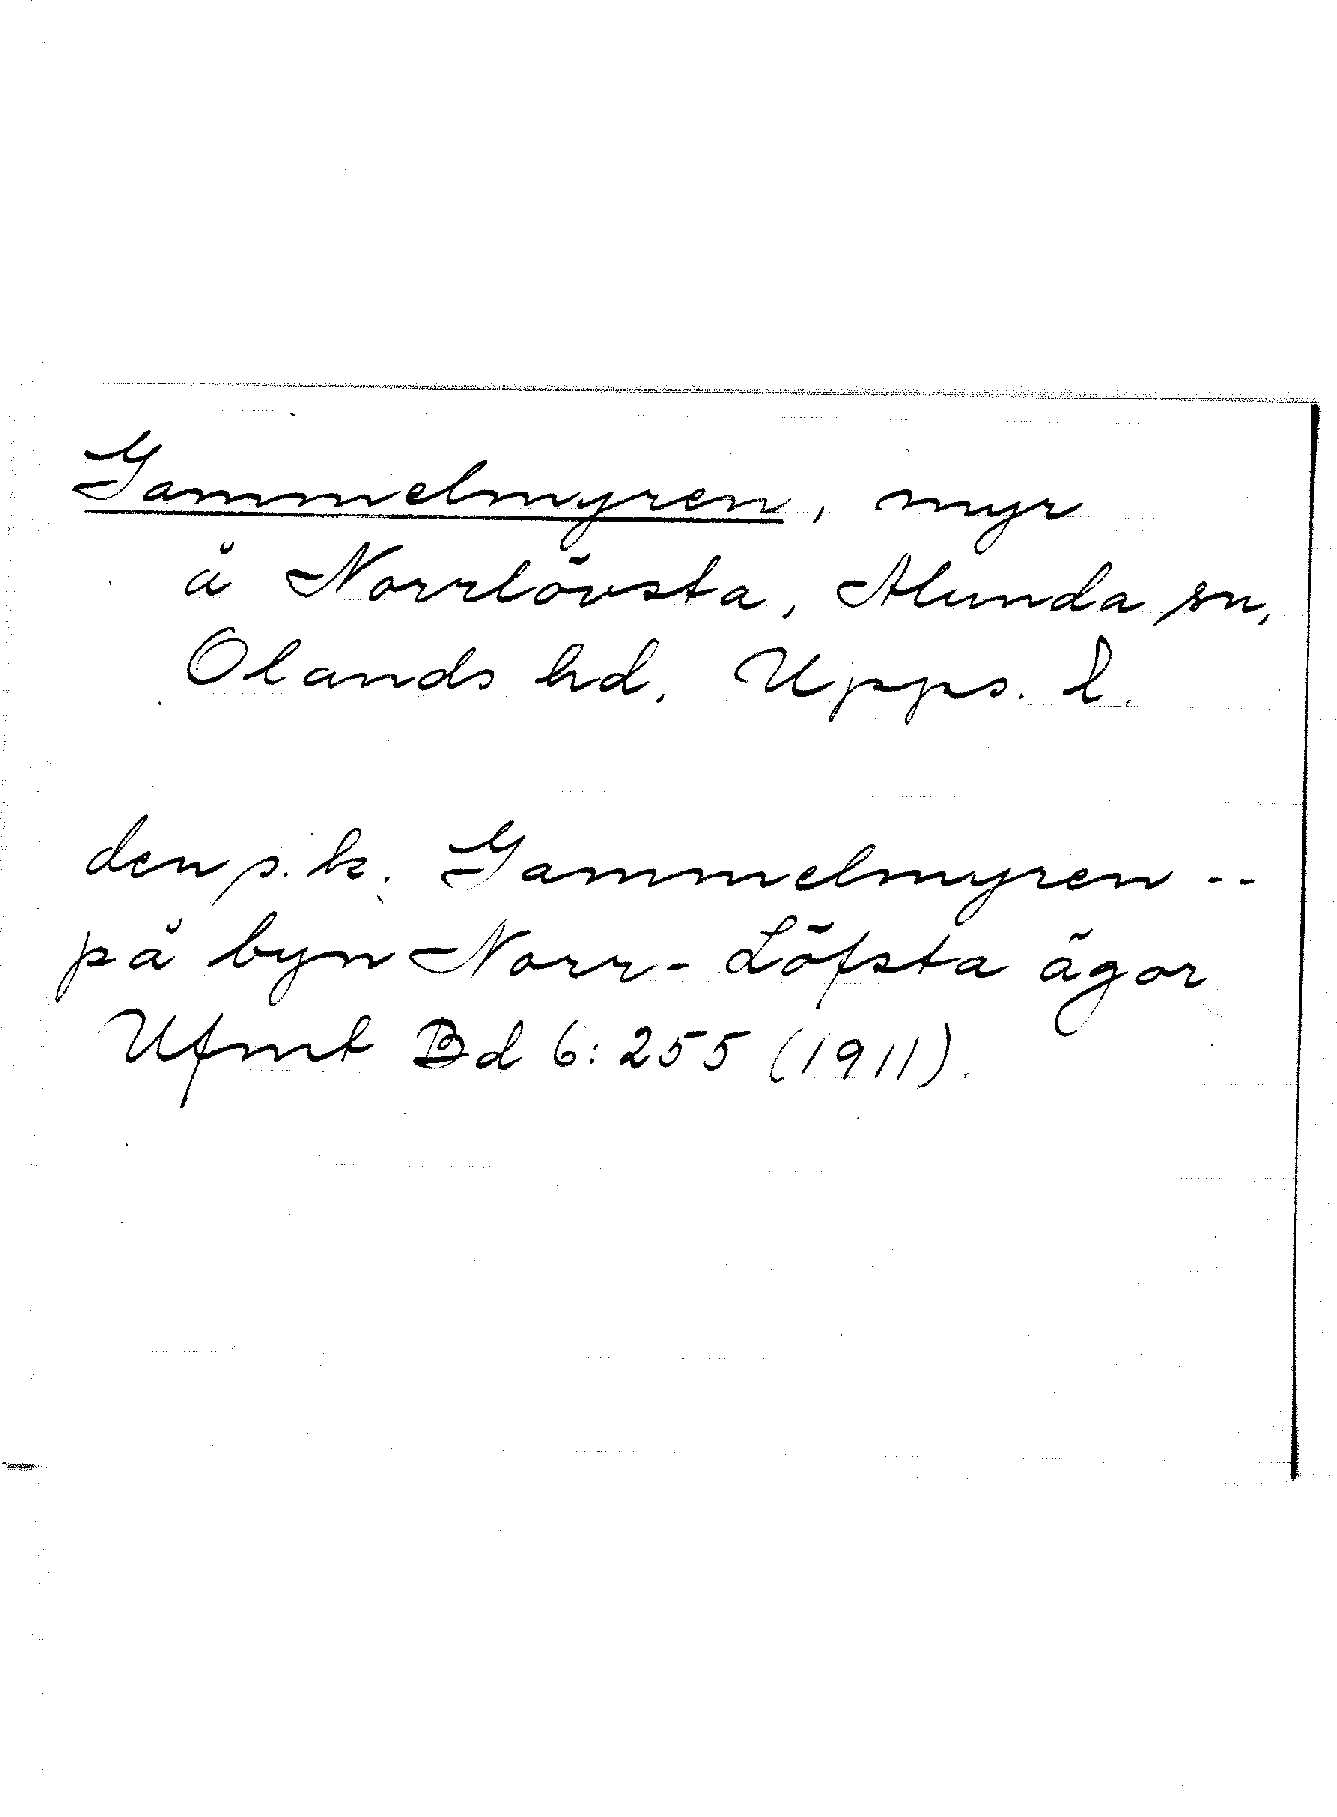 Gammelmyren, myr
å Norrlövsta, Alunda sn,
Olands hd, Upps. l.
den s.k. Gammelmyren --
på byn Norr-Löfsta ägor
Ufmt Bd 6: 255 (1911).